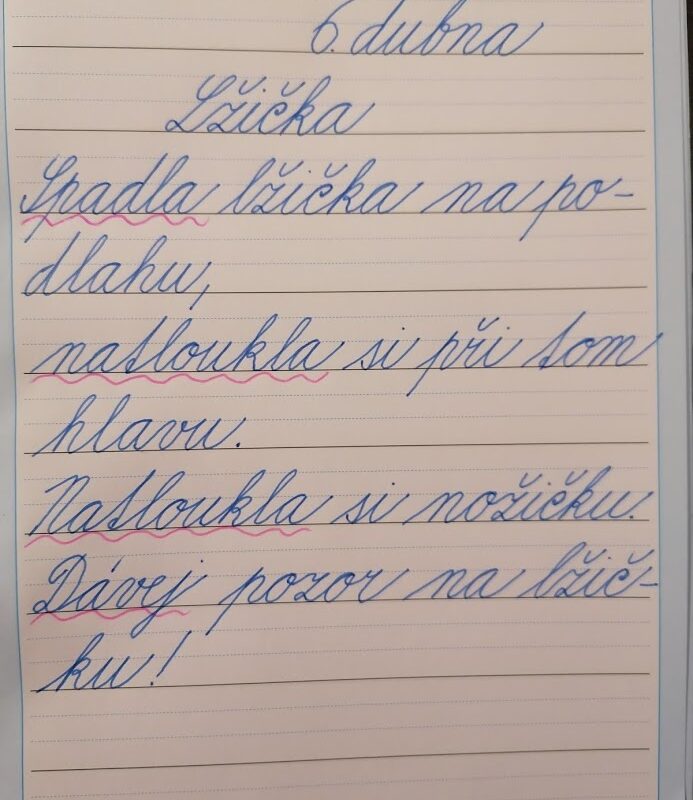 6. dubna
Lžička
Spadla lžička na po-
dlahu,
natloukla si při tom
hlavu.
Natloukla si nožičku.
Dávej pozor na lžič-
ku!